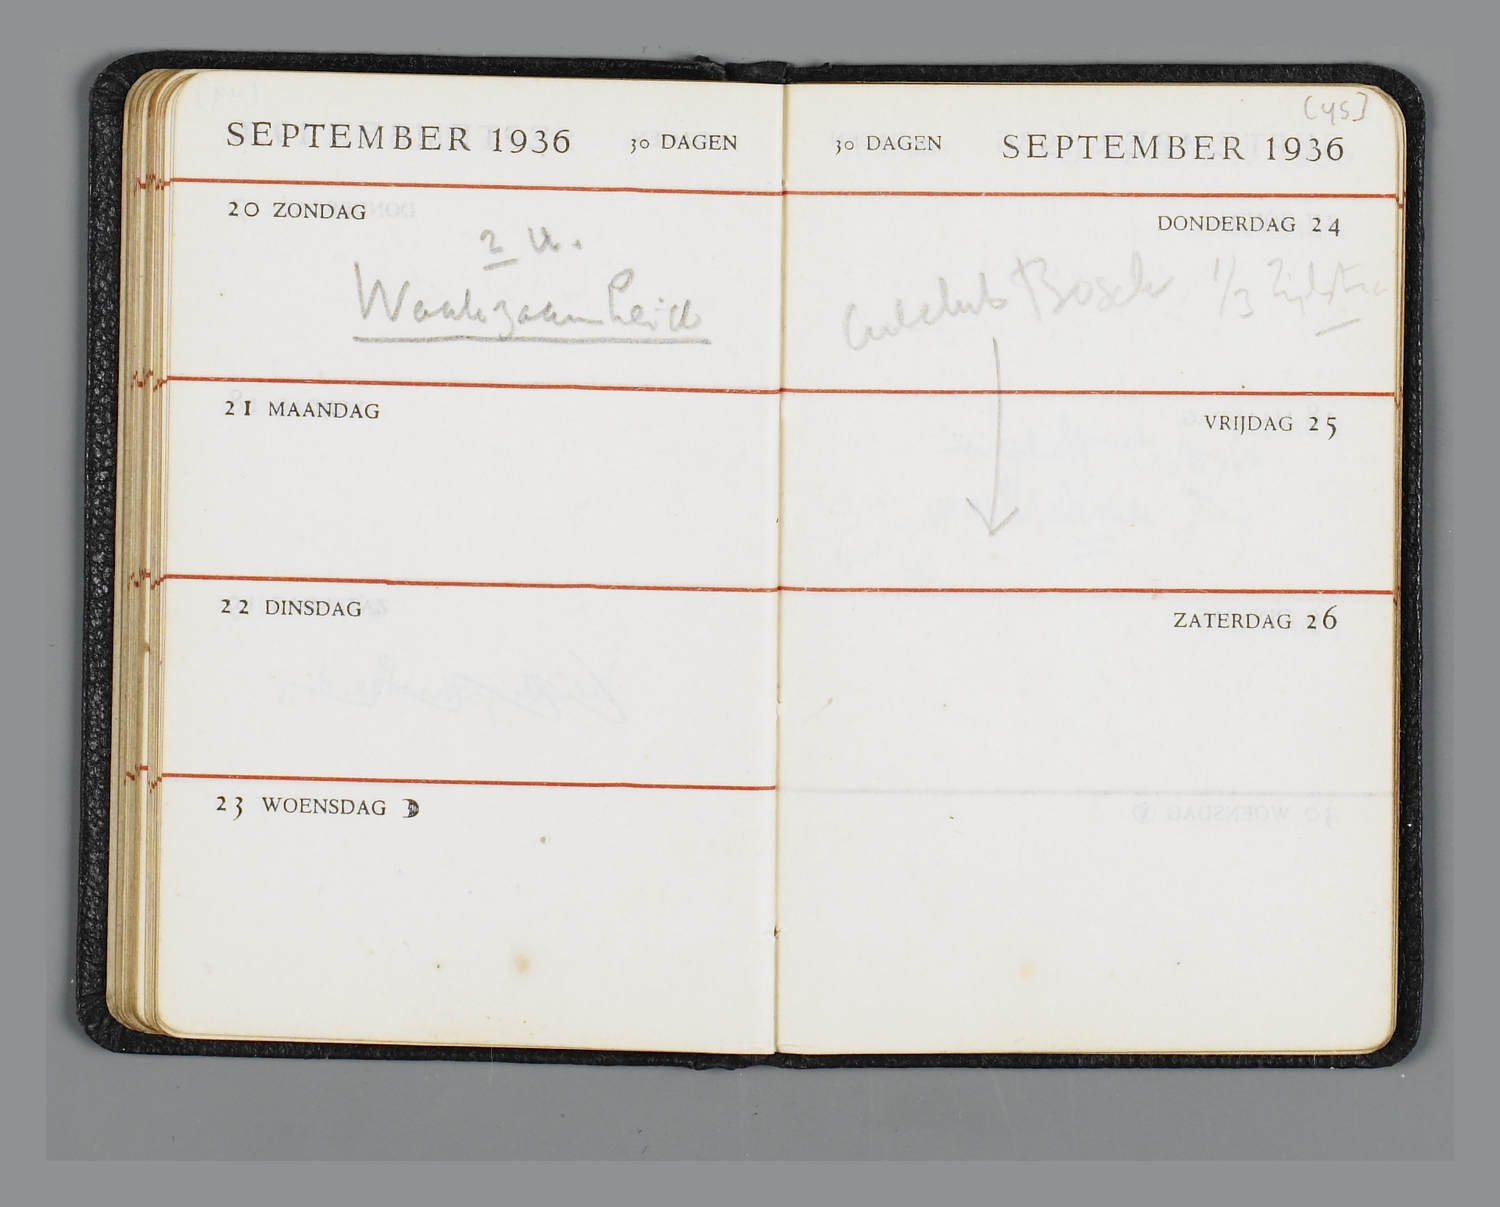 SEPTEMBER 1936 30 DAGEN
20 ZONDAG
2 u.
Waakzaamheid
21 MAANDAG
22 DINSDAG
23 WOENSDAG
[45]
30 DAGEN SEPTEMBER 1936
DONDERDAG 24
Bosch 1/3 Zijlstra
VRIJDAG 25
ZATERDAG 26